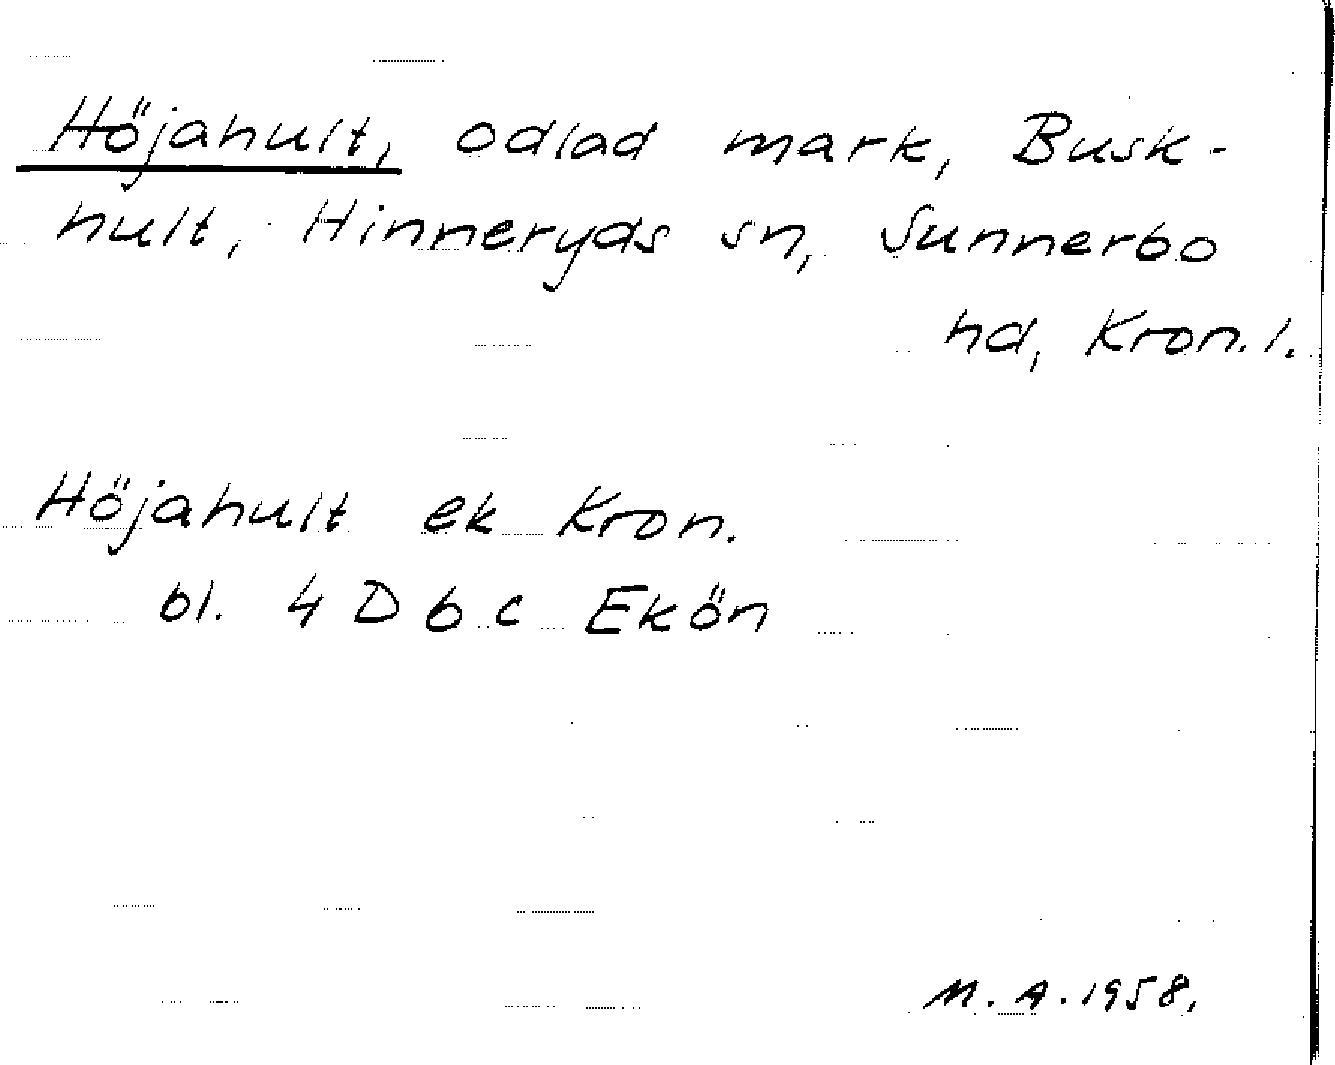 Höjahult, odlad mark, Busk-
hult, Hinneryds sn, Sunnerbo
hd, Kron. l.
Höjahult ek Kron.
bl. 4 D b c Ekön
M. A. 1958.